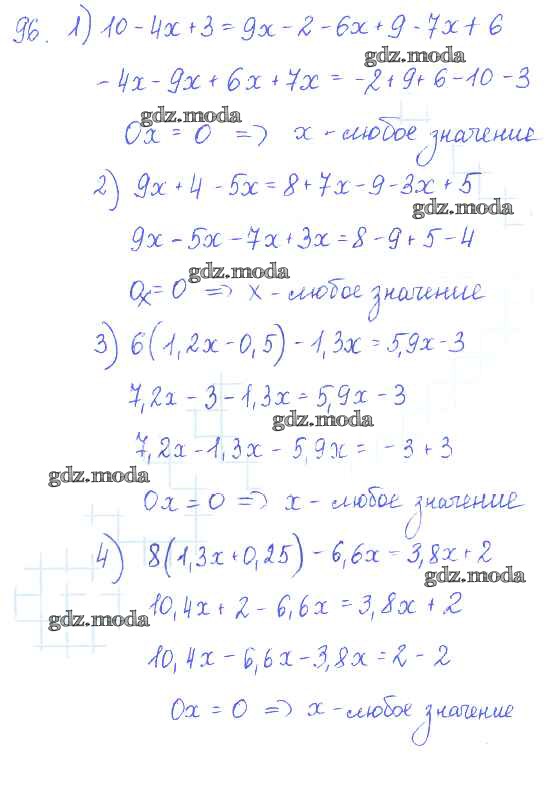 96. 1) 10 - 4x + 3 = 9x - 2 - 6x + 9 - 7x + 6
gdz.moda
- 4x - 9x + 6x + 7x = -2 + 9 + 6 - 10 - 3
gdz.moda
0x = 0 => x - любое значение
2) 9x + 4 - 5x = 8 + 7x - 9 - 3x + 5
gdz.moda
9x - 5x - 7x + 3x = 8 - 9 + 5 - 4
gdz.moda
0x = 0 => x - любое значение
3) 6(1,2x - 0,5) - 1,3x = 5,9x - 3
7,2x - 3 - 1,3x = 5,9x - 3
gdz.moda
7,2x - 1,3x - 5,9x = - 3 + 3
gdz.moda
0x = 0 => x - любое значение
4) 8(1,3x + 0,25) - 6,6x = 3,8x + 2
gdz.moda
10,4x + 2 - 6,6x = 3,8x + 2
gdz.moda
10,4x - 6,6x - 3,8x = 2 - 2
0x = 0 => x - любое значение